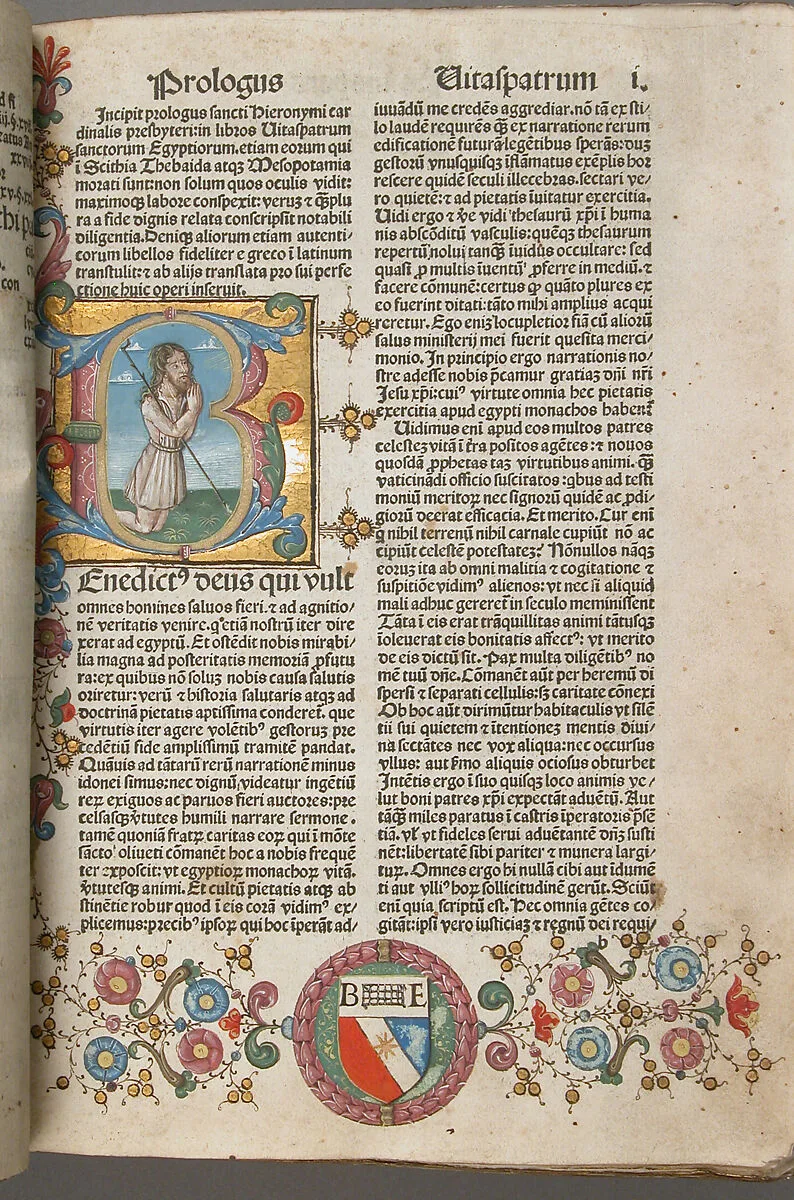 Prologus
Incipit prologus sancti Hieronymi car
dinalis presbyteri:in libros Uitaspatrum
sanctorum Egyptiorum.etiam eorum qui
ī Scithia Thebaida atqꝫ Mesopotamia
morati sunt:non solum quos oculis vidit:
maximoqꝫ labore conspexit:veruꝫ ⁊ q̄ꝫplu
ra a fide dignis relata conscripsit notabili
diligentia.Deniqꝫ aliorum etiam autenti/
corum libellos fideliter e greco ī latinum
transtulit:⁊ ab alijs translata pro sui perfe
ctione huic operi inseruit.
Enedictꝰ deus qui vult
omnes homines saluos fieri.⁊ ad agnitio/
nē veritatis venire.qͥ etiā nostrū iter dire
xerat ad egyptū.Et ostēdit nobis mirabi/
lia magna ad posteritatis memoriā ꝓfutu
ra:ex quibus nō soluꝫ nobis causa salutis
oriretur:verū ⁊ historia salutaris atqꝫ ad
doctrinā pietatis aptissima conderet̄. que
virtutis iter agere volētibꝰ gestoruꝫ pre
cedētiū fide amplissimū tramitē pandat.
Quāuis ad tātarū rerū narrationē minus
idonei simus:nec dignū videatur ingētiū
reꝝ exiguos ac paruos fieri auctores:pre
celsasqꝫ v̄tutes humili narrare sermone.
tamē quoniā fratꝝ caritas eoꝝ qui ī mōte
sācto oliueti cōmanēt hoc a nobis frequē
ter exposcit:vt egyptioꝝ monachoꝝ vitā.
v̄tutesqꝫ animi. Et cultū pietatis atqꝫ ab
stinētie robur quod ī eis corā vidimꝰ ex/
plicemus:precibꝰ ipsoꝝ qui hoc īperāt ad/
Uitaspatrum i.
iuuādū me credēs aggrediar.nō tā ex sti/
lo laudē requirēs q̄ꝫ ex narratione rerum
edificationē futurā legētibus sperās:duꝫ
gestorū vnusquisqꝫ īflāmatus exēplis hor
rescere quidē seculi illecebras.sectari ve/
ro quietē:⁊ ad pietatis īuitatur exercitia.
Uidi ergo ⁊ v̄e vidi thesaurū xp̄i ī huma
nis abscōditū vasculis:quēqꝫ thesaurum
repertū nolui tanqꝫ īuidꝰ occultare: sed
quasi ꝓ multis īuentū ꝓferre in mediū.⁊
facere cōmunē:certus ꝙ quāto plures ex
eo fuerint ditati:tāto mihi amplius acqui
reretur. Ego enīꝫ locupletior fiā cū aliorū
salus ministerij mei fuerit quesita merci/
monio. In principio ergo narrationis no/
stre adesse nobis p̄camur gratiaꝫ dn̄i nr̄i
Jesu xp̄i:cuiꝰ virtute omnia hec pietatis
exercitia apud egypti monachos habent̄
Uidimus enī apud eos multos patres
celesteꝫ vitā ī t̄ra positos agētes:⁊ nouos
quosdā ꝓphetas taꝫ virtutibus animi. q̄ꝫ
vaticinādi officio suscitatos:qͥbus ad testi
moniū meritoꝝ nec signorū quidē ac ꝓdi/
giorū deerat efficacia. Et merito. Cur enī
q̄ nihil terrenū nihil carnale cupiūt nō ac
cipiūt celestē potestateꝫ? Nōnullos nāqꝫ
eoruꝫ ita ab omni malitia ⁊ cogitatione ⁊
suspitiōe vidimꝰ alienos: vt nec si aliquid
mali adhuc gereret̄ in seculo meminissent
Tāta ī eis erat trāquillitas animi tātusqꝫ
īoleuerat eis bonitatis affectꝰ: vt merito
de eis dictū sit. Pax multa diligētibꝰ no
mē tuū dn̄e. Cōmanēt aūt per heremū di
spersi ⁊ separati cellulis:sꝫ caritate cōnexi
Ob hoc aūt dirimūtur habitaculis vt silē
tii sui quietem ⁊ ītentionez mentis diui/
na sectātes nec vox aliqua:nec occursus
vllus: aut ẜmo aliquis ociosus obturbet
Intētis ergo ī suo quisqꝫ loco animis ve/
lut boni patres xp̄i expectāt aduētū. Aut
tāqꝫ miles paratus ī castris īperatoris p̄sē
tiā. vꝉ vt fideles serui aduētante dn̄ꝫ susti
nēt:libertatē sibi pariter ⁊ munera largi/
tuꝝ. Omnes ergo hi nullā cibi aut īdumē
ti aut vlliꝰ hoꝝ sollicitudinē gerūt. Sciūt
enī quia scriptū est. Hec omnia gētes co/
gitāt:ipsi vero iusticiaꝫ ⁊ regnū dei requi/
b
B E